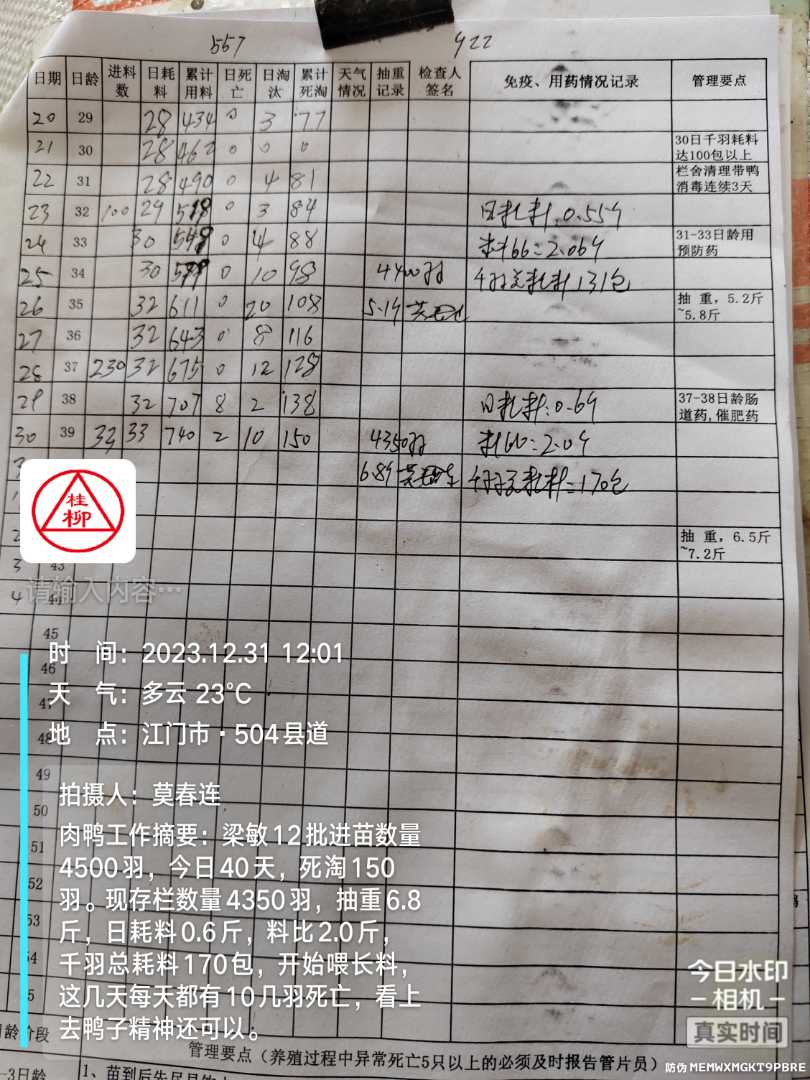 557 422
日期 日龄 进料数 日耗料 累计用料 日死亡 日淘汰 累计死淘 天气情况 抽重记录 检查人签名 免疫、用药情况记录 管理要点
20 29 28 434 0 3 77
21 30 28 462 0 0 0 30日千羽耗料达100包以上
22 31 28 490 0 4 81 栏舍清理带鸭消毒连续3天
23 32 100 29 518 0 3 84 日耗料,0.55斤
24 33 30 548 0 4 88 料66=2.06斤 31-33日龄用预防药
25 34 30 579 0 10 98 4400羽 千羽总耗料131包
26 35 32 611 0 20 108 5.1斤 抽 重,5.2斤~5.8斤
27 36 32 643 0 8 116
28 37 230 32 675 0 12 128
29 38 32 707 8 2 138 日耗料:0.6斤 37-38日龄肠道药,催肥药
30 39 33 33 740 2 10 150 4350羽 料60=2.0斤
6.8斤 千羽总耗料=170包
桂柳
抽 重,6.5斤~7.2斤
3 43
请输入内容…
4 44
45
时 间:2023.12.31 12:01
46
天 气:多云 23℃
47
地 点:江门市·504县道
48
49
拍摄人:莫春连
50
肉鸭工作摘要:梁敏12批进苗数量
51
4500羽,今日40天,死淘150
52
羽。现存栏数量4350羽,抽重6.8
53
斤,日耗料0.6斤,料比2.0斤,
54
千羽总耗料170包,开始喂长料,
这几天每天都有10几羽死亡,看上
去鸭子精神还可以。
今日水印
-相机-
真实时间
日龄阶段 管理要点(养殖过程中异常死亡5只以上的必须及时报告管片员)
防伪 MEMWXMGKT9PBRE
-3日龄 1、苗到后先尽目